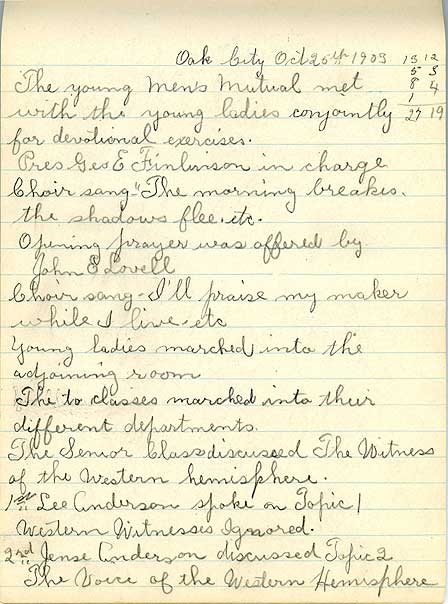 Oak City Oct 25th 1903
13 12
5 3
8 4
1
27 19
The young men's Mutual met
with the young ladies conjointly
for devotional exercises.
Pres Geo E Finlinson in charge
Choir sang "The morning breakes.
the shadows flee. etc.
Opening prayer was offered by
John E Lovell
Choir sang - I'll praise my maker
while I live - etc
Young ladies marched into the
adjoining room
The to classes marched into their
different departments.
The Senior Class discussed The Witness
of the Western hemisphere.
1st Lee Anderson spoke on Topic 1
Western Witnesses Ignored.
2nd Jense Anderson discussed Topic 2
The Voice of the Western Hemisphere